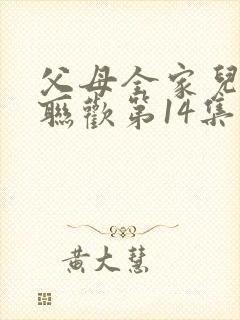 父母全家兒
聯歡第14集
黃大慧